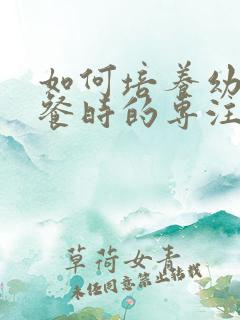 如何培养幼
餐时的专注
草荷女青
未经同意禁止转载